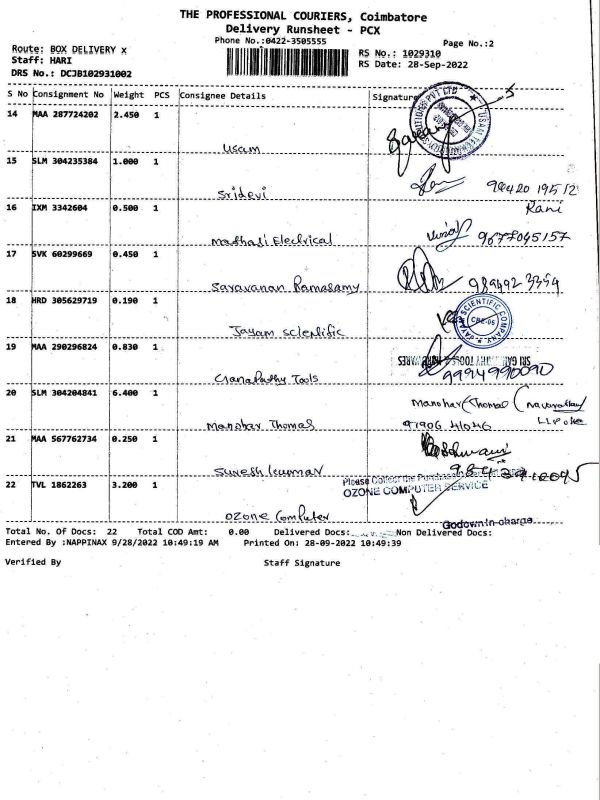 THE PROFESSIONAL COURIERS, Coimbatore
Delivery Runsheet - PCX
Phone No.:0422-3505555
Page No.:2
Route: BOX DELIVERY x
Staff: HARI
DRS No.: DCJB102931002
RS No.: 1029310
RS Date: 28-Sep-2022
S No Consignment No Weight PCS Consignee Details Signature
14 MAA 287724202 2.450 1
Usam
15 SLM 304235384 1.000 1
Sridevi
Rani
16 IXM 3342604 0.500 1
Madhali Electrical 9677045157
17 SVK 60299669 0.450 1
Saravanan Ramasamy
18 HRD 305629719 0.190 1
JAYAM SCIENTIFIC COMPANY
CBE-05
Jayam Scientific
19 MAA 290296824 0.830 1
Ganapathy Tools 9994990090
20 SLM 304204841 6.400 1
Manohar Thomas
Manohar Thomas 97906 41046
21 MAA 567762734 0.250 1
Suresh kumar
22 TVL 1862263 3.200 1
Please Collect the
OZONE COMPUTER SERVICE
Ozone Computer
Godown In-charge
Total No. Of Docs: 22 Total COD Amt: 0.00 Delivered Docs: Non Delivered Docs:
Entered By :NAPPINAX 9/28/2022 10:49:19 AM Printed On: 28-09-2022 10:49:39
Verified By Staff Signature